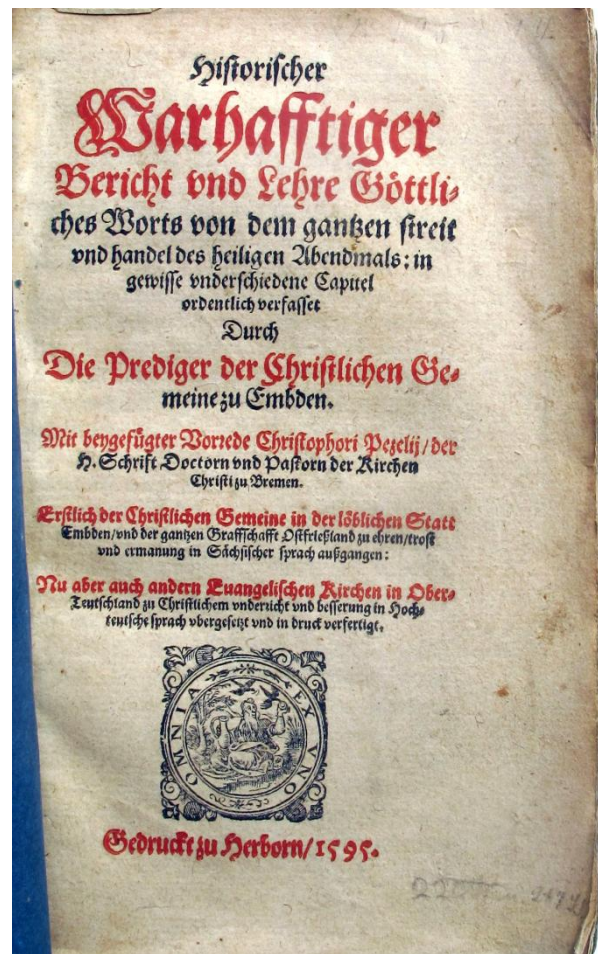 Historischer
Warhafftiger
Bericht vnd Lehre Göttli-
ches Worts von dem gantzen streit
vnd handel des heiligen Abendmals: in
gewisse vnderschiedene Capitel
ordentlich verfasset
Durch
Die Prediger der Christlichen Ge-
meine zu Embden.
Mit beygefügter Vorrede Christophori Pezelij/ der
H. Schrift Doctorn vnd Pastorn der Kirchen
Christi zu Bremen.
Erstlich der Christlichen Gemeine in der löblichen Statt
Embden/ vnd der gantzen Graffschafft Ostfrießland zu ehren/ trost
vnd ermanung in Sächsischer sprach außgangen:
Nu aber auch andern Euangelischen Kirchen in Ober-
Teutschland zu Christlichem vnderricht vnd besserung in Hoch-
teutsche sprach vbergesetzt vnd in druck verfertigt.
OMNIA EX VNO
Gedruckt zu Herborn/ 1595.